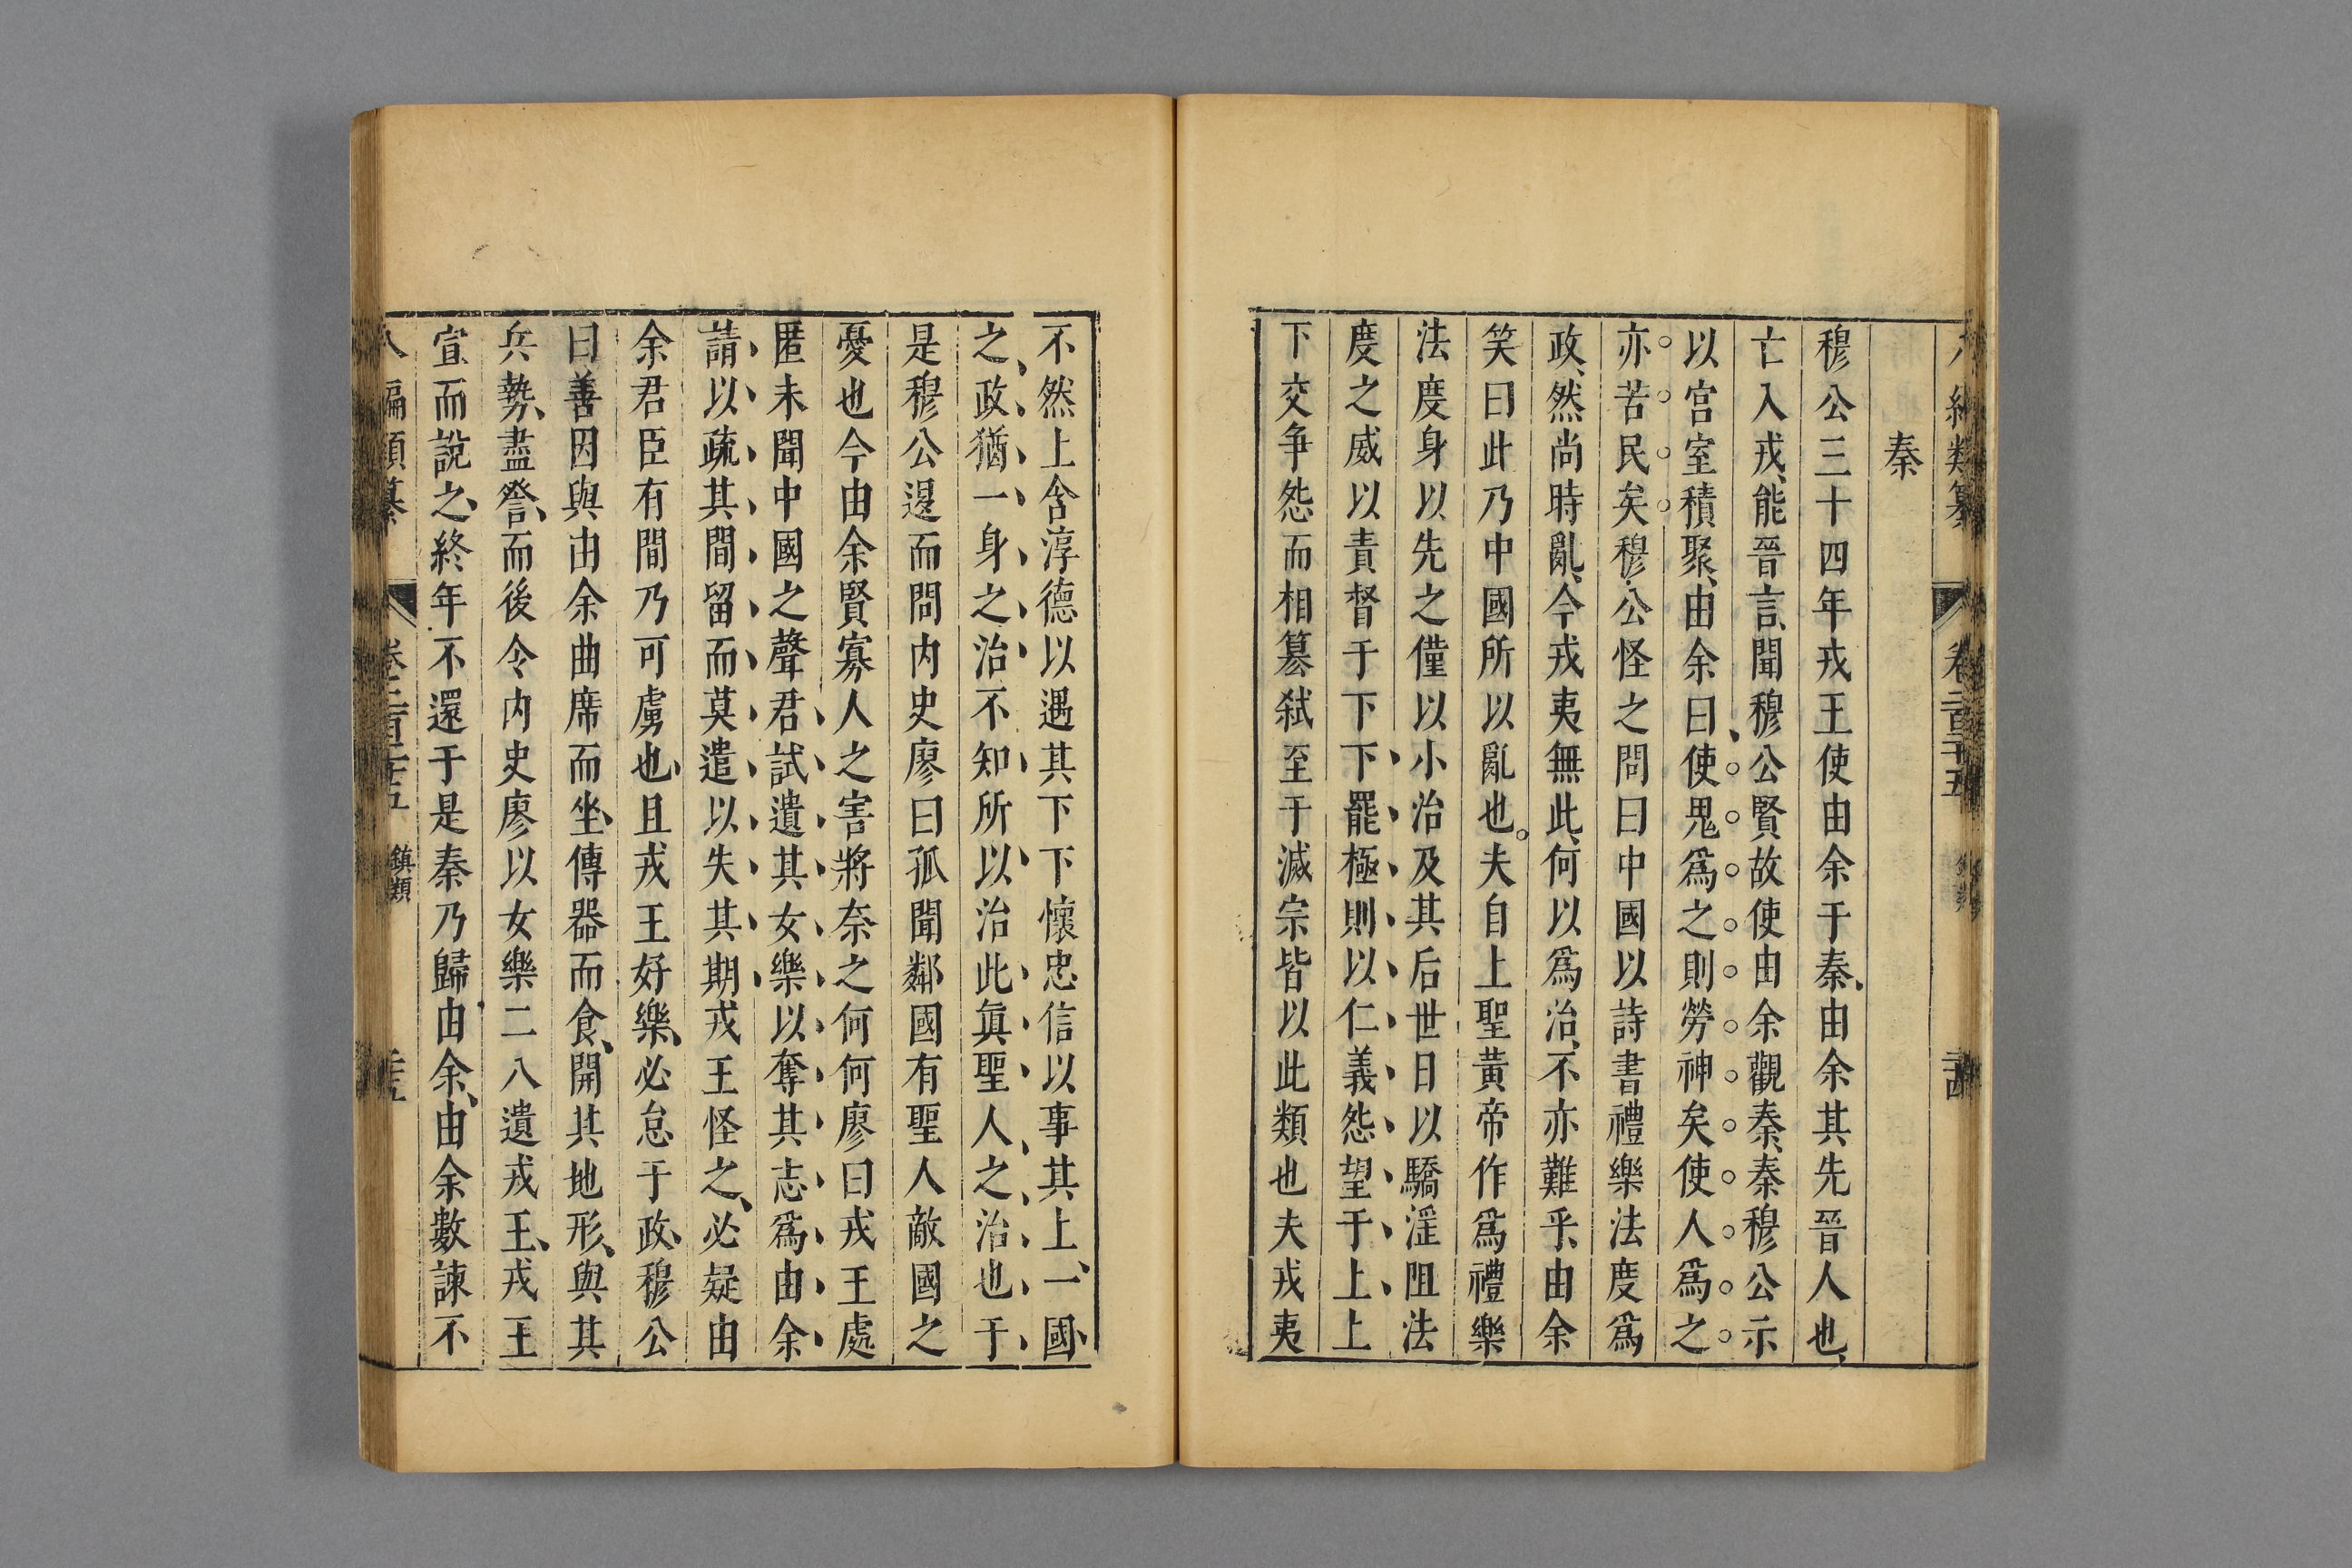 秦
穆公三十四年戎王使由余于秦、由余其先晉人也、
亡入戎、能晉言、聞穆公賢故使由余觀秦、秦穆公示
以宮室積聚、由余曰、使鬼爲之則勞神矣使人爲之
亦苦民矣穆公怪之問曰中國以詩書禮樂法度爲
政、然尚時亂、今戎夷無此、何以爲治、不亦難乎、由余
笑曰此乃中國所以亂也。夫自上聖黄帝作爲禮樂
法度身以先之僅以小治及其后世日以驕淫阻法
度之威以責督于下下罷極則以仁義怨望于上上
下交争怨而相簒弑至于滅宗皆以此類也夫戎夷
不然上含淳德以遇其下下懷忠信以事其上、一國、
之政猶一身之治不知所以治此眞聖人之治也于
是穆公退而問内史廖曰孤聞鄰國有聖人敵國之
憂也今由余賢寡人之害將奈之何何廖曰戎王處
匿未聞中國之聲君試遺其女樂以奪其志爲由余
請以疏其間留而莫遣以失其期戎王怪之、必疑由
余君臣有間乃可虜也、且戎王好樂、必怠于政、穆公
曰善因與由余曲席而坐、傳器而食、開其地形、與其
兵勢、盡詧、而後令内史廖以女樂二八遺戎王、戎王
宣而說之、終年不還于是秦乃歸由余、由余數諫不
鎮類